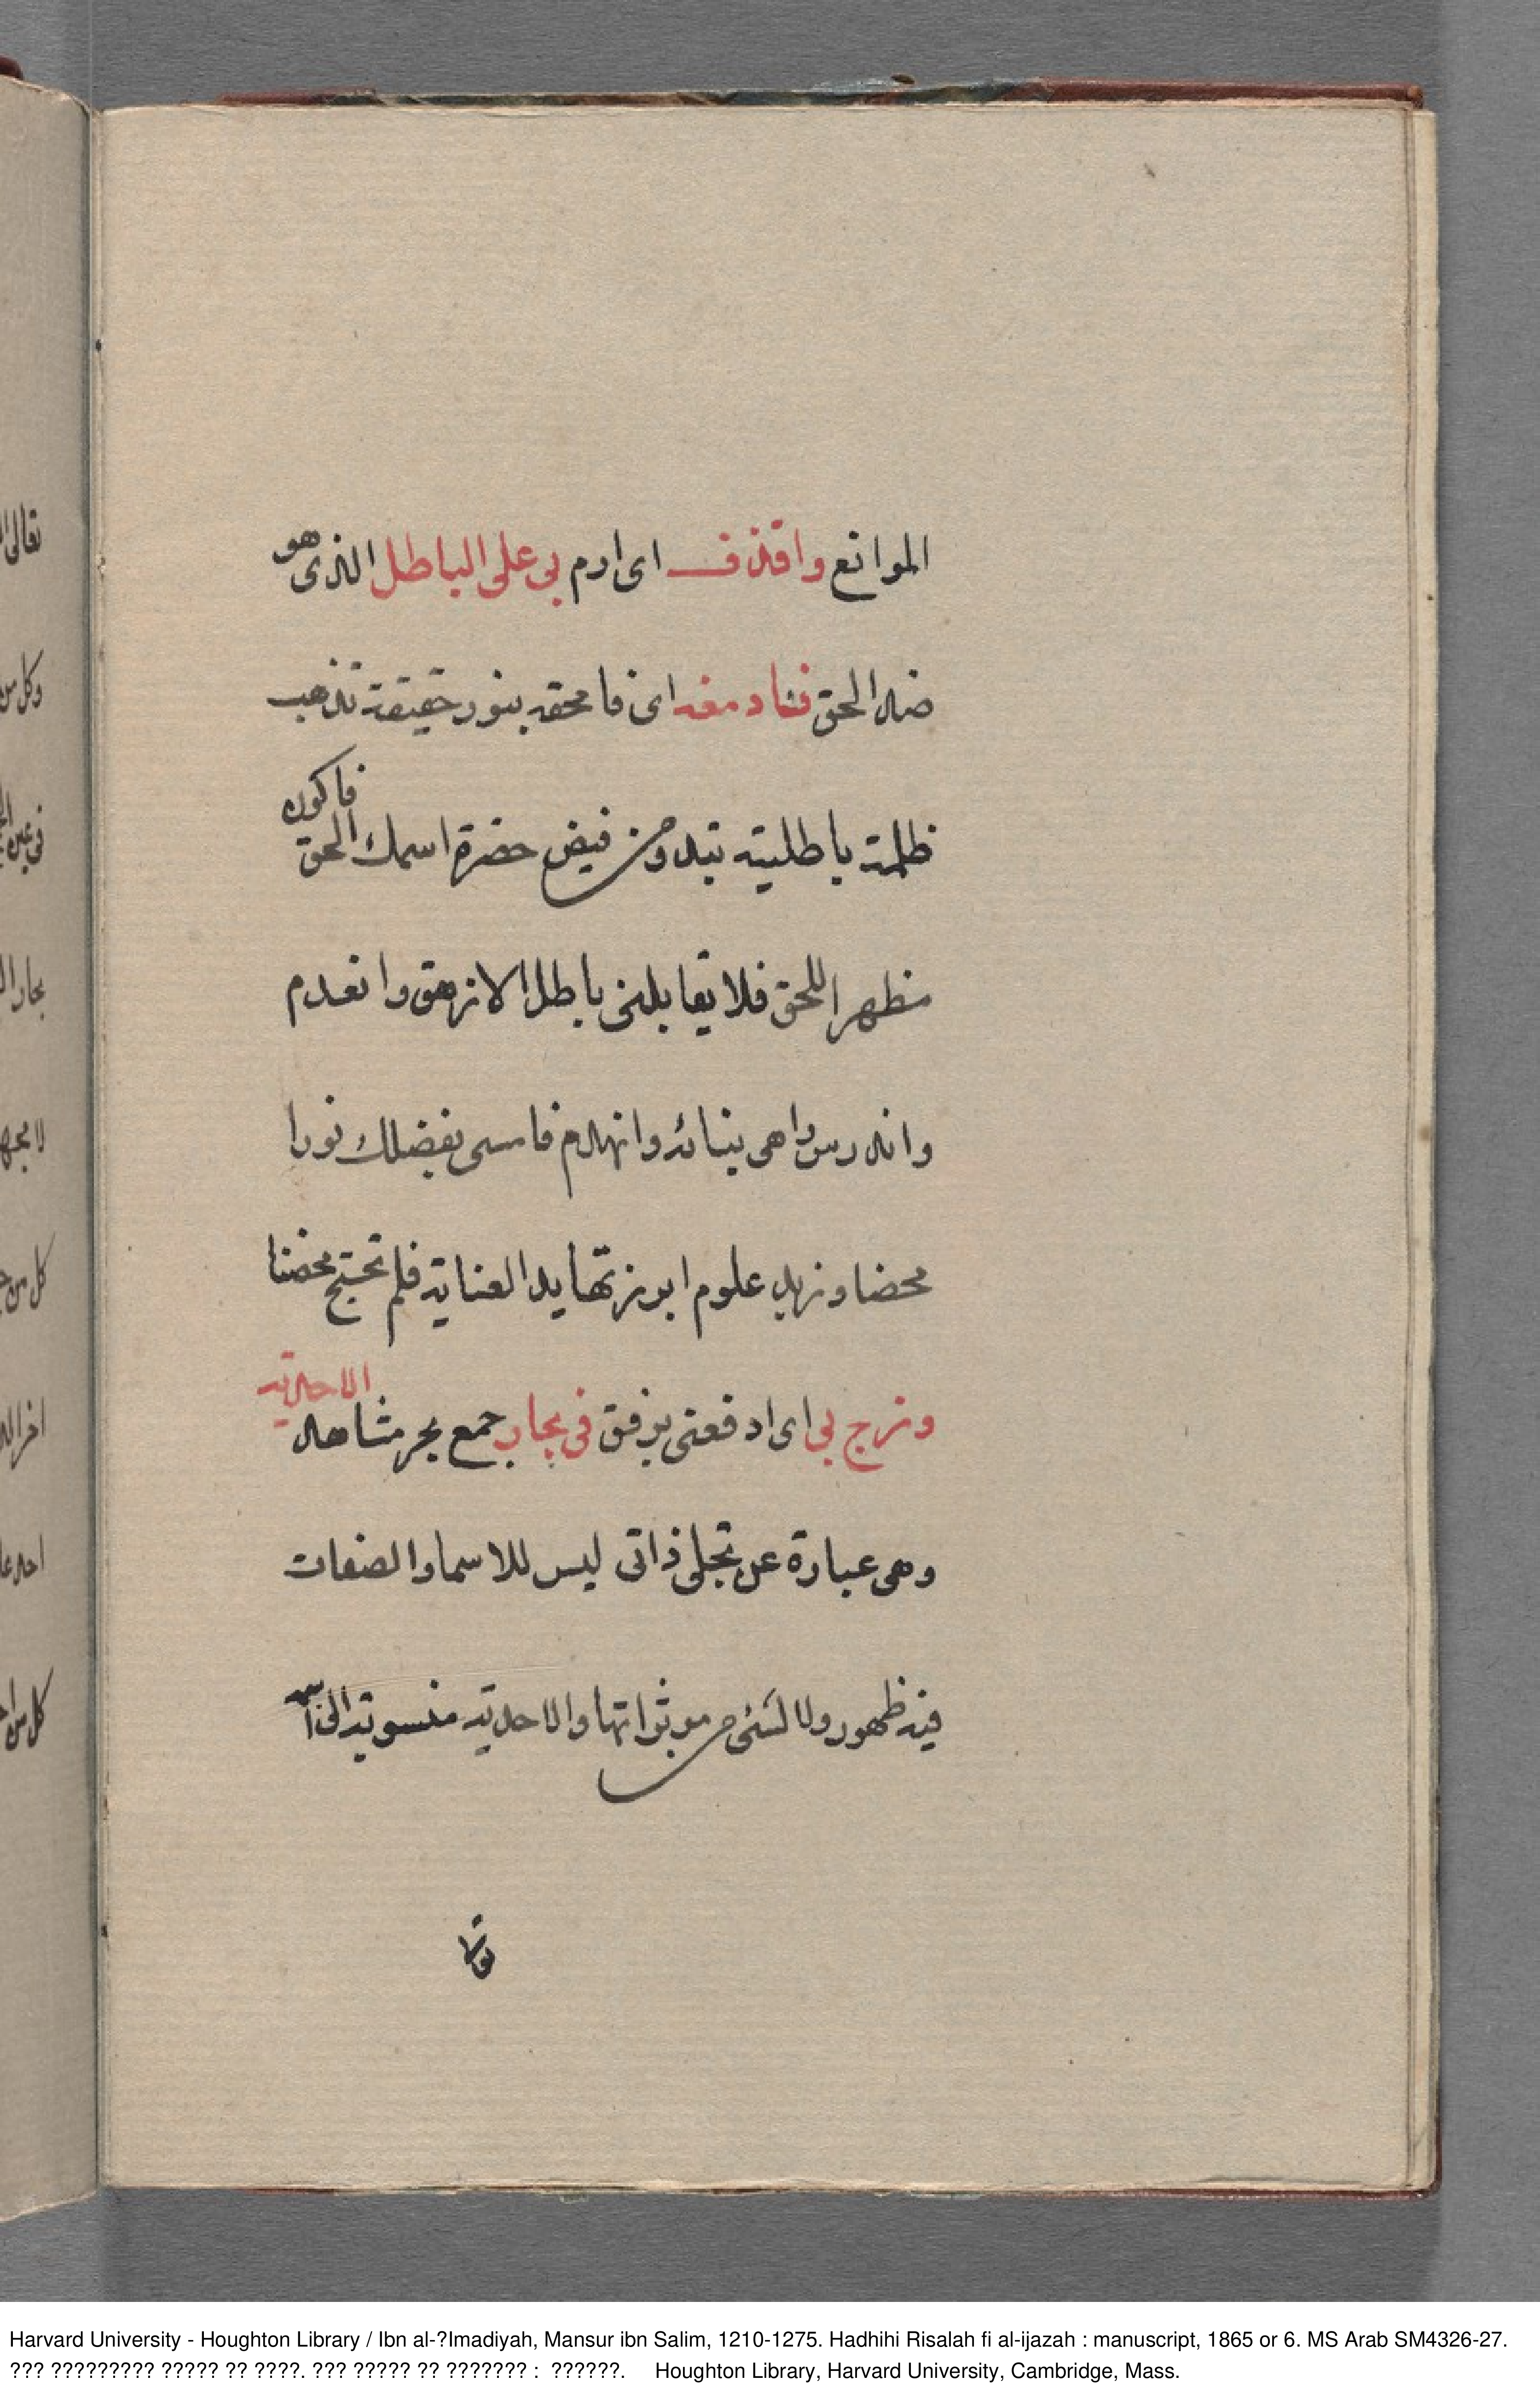 الموانع واقذف اى ارم بى على الباطل الذى هو
ضد الحق فادمغه اى فامحقه بنور حقيقة تذهب
ظلمة باطليته تبدو من فيض حضرة اسمك الحق فاكون
مظهرا للحق فلا يقابلنى باطل الا زهق وانعدم
واندرس واهى بنائه وانهدم فامسى بفضلك نورا
محضا وزبد علوم ابرزتها يد العناية فلم تحتج مخضا
وزج بى اى ادفعنى برفق فى بحار جمع بحر مشاهد الاحدية
وهى عبارة عن تجلى ذاتى ليس للاسما والصفات
فيه ظهور ولا لشئ من موثراتها والاحدية منسوبة الى
Harvard University - Houghton Library / Ibn al-?Imadiyah, Mansur ibn Salim, 1210-1275. Hadhihi Risalah fi al-ijazah : manuscript, 1865 or 6. MS Arab SM4326-27.
??? ????????? ????? ?? ????. ??? ????? ?? ??????? : ??????. Houghton Library, Harvard University, Cambridge, Mass.